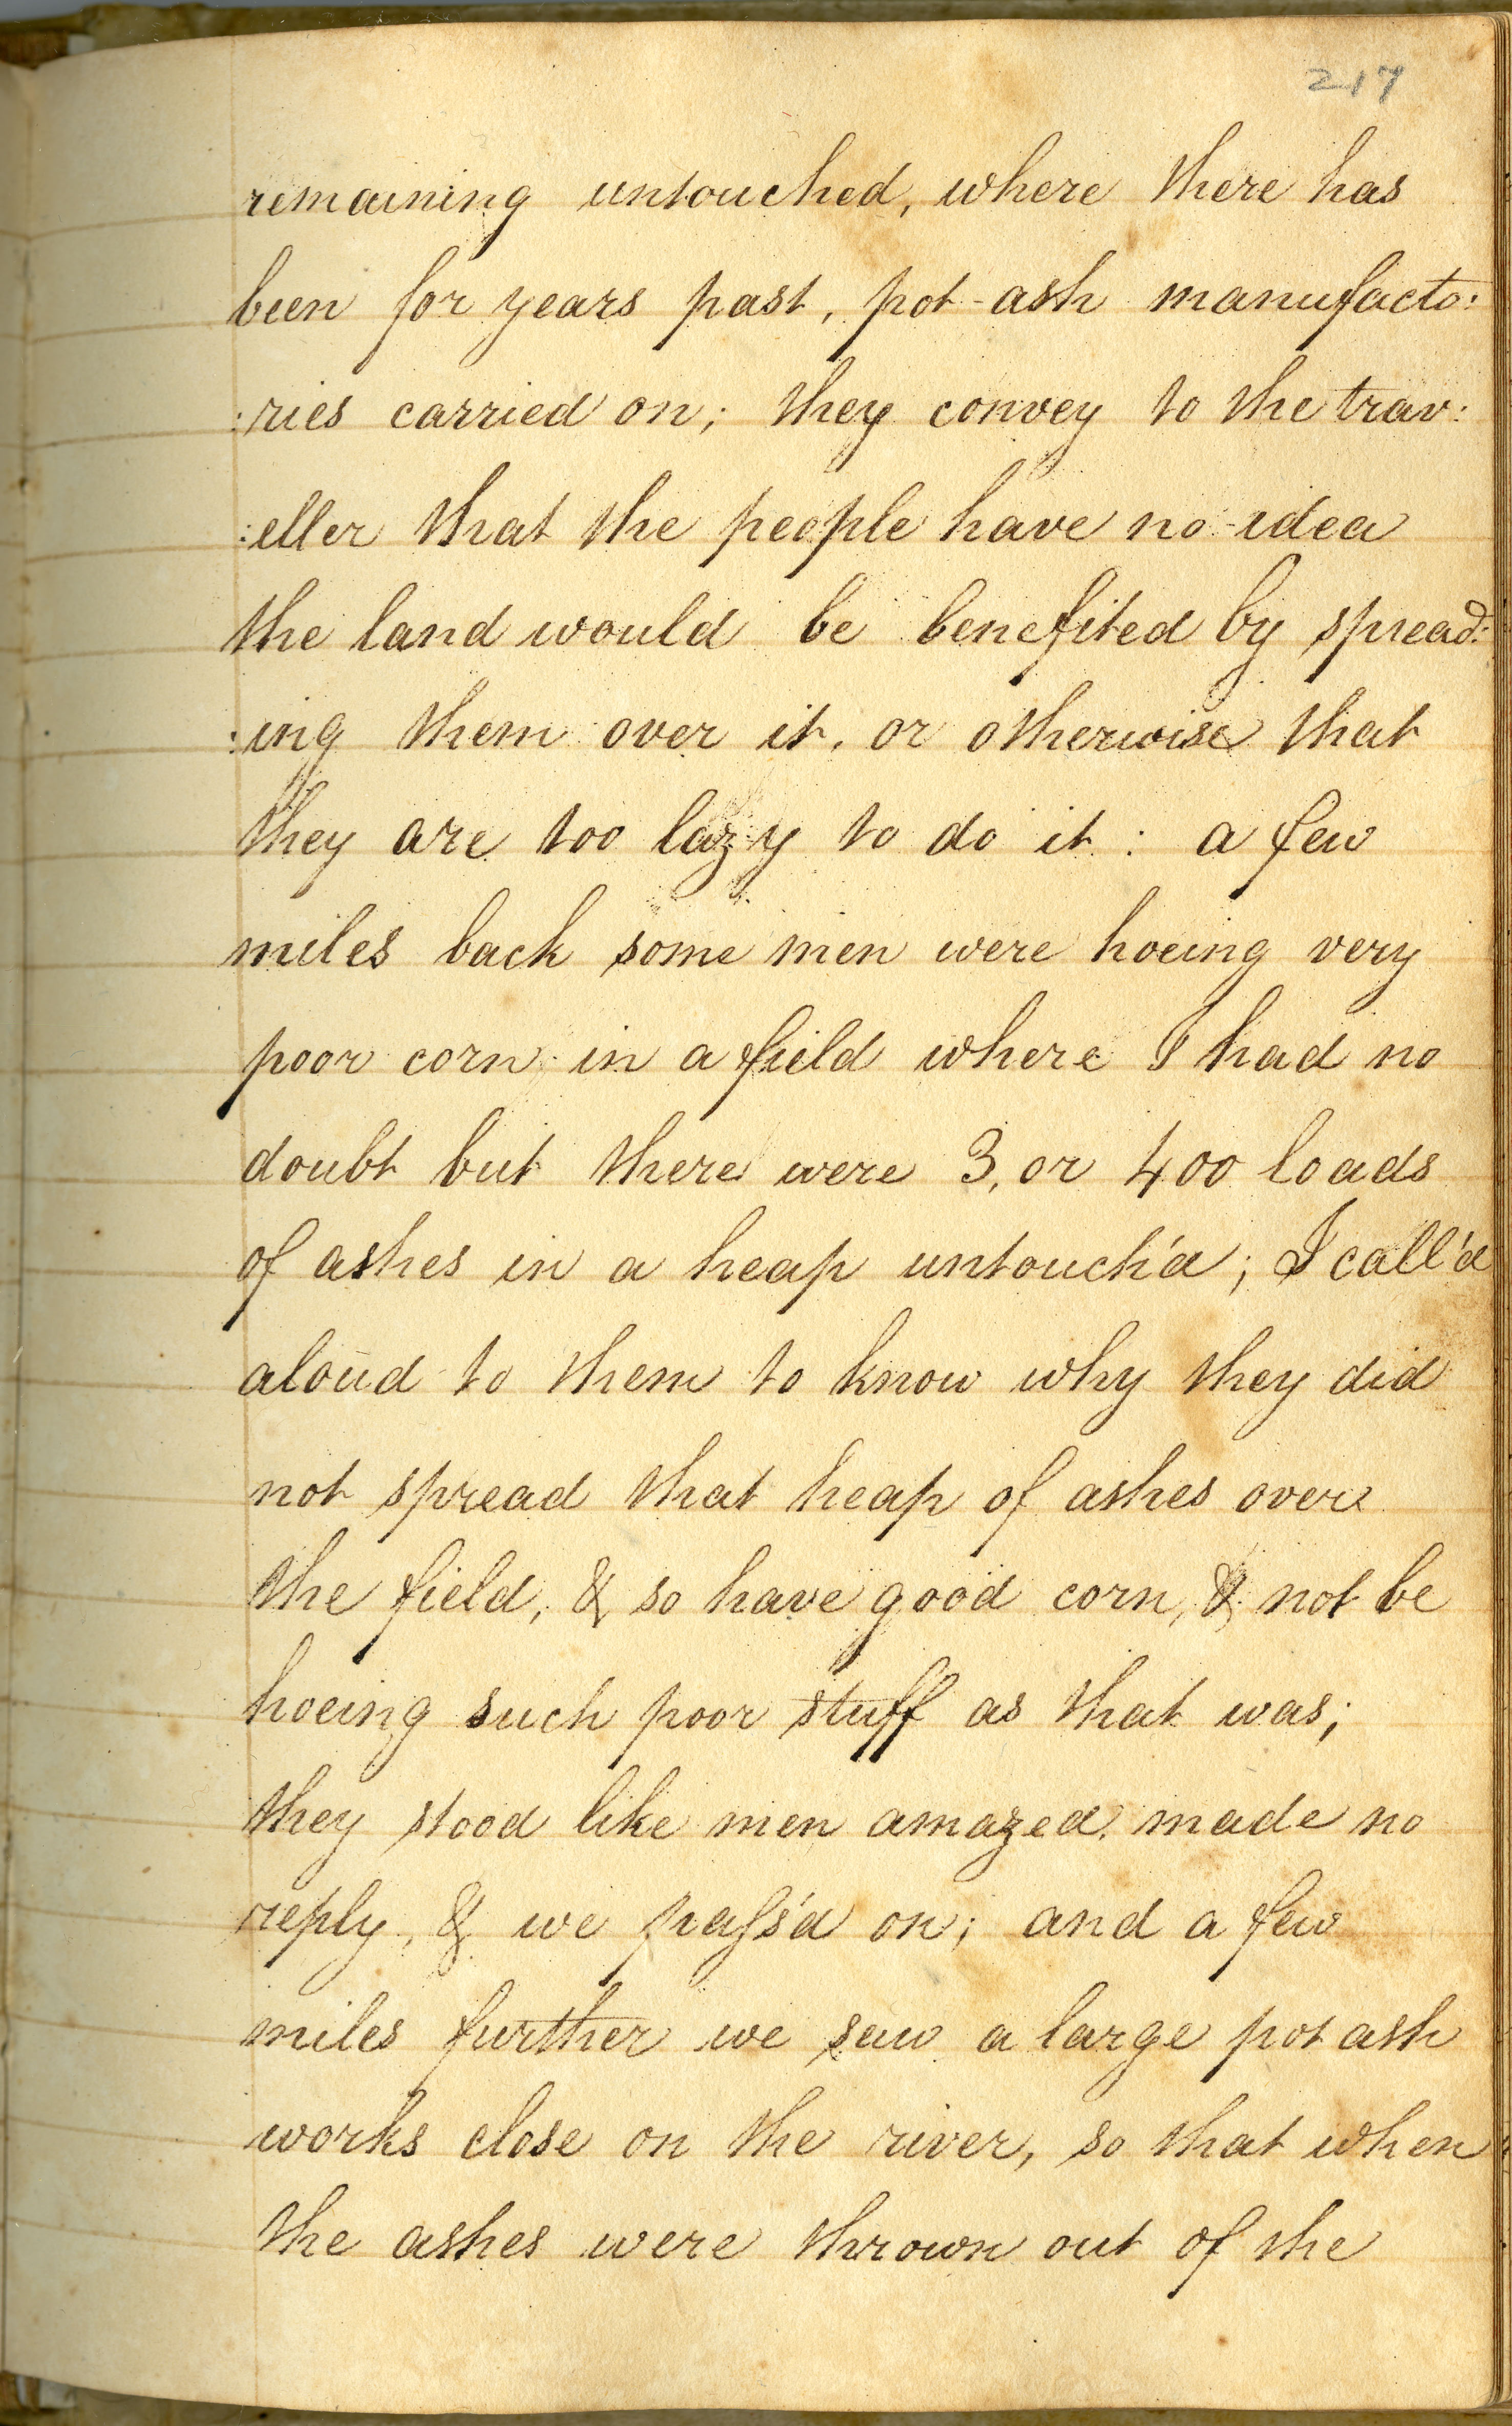 217
remaining untouched, where there has
been for years past, pot-ash manufacto:
:ries carried on; they convey to the trav:
:eller that the people have no idea
the land would be benefited by spread:
:ing them over it, or otherwise that
they are too lazy to do it: a few
miles back some men were hoeing very
poor corn in a field where I had no
doubt but there were 3, or 400 loads
of ashes in a heap untouch'd; I call'd
aloud to them to know why they did
not spread that heap of ashes over
the field, & so have good corn, & not be
hoeing such poor stuff as that was;
they stood like men amazed, made no
reply, & we paſs'd on; and a few
miles further we saw a large pot ash
works close on the river, so that when
the ashes were thrown out of the